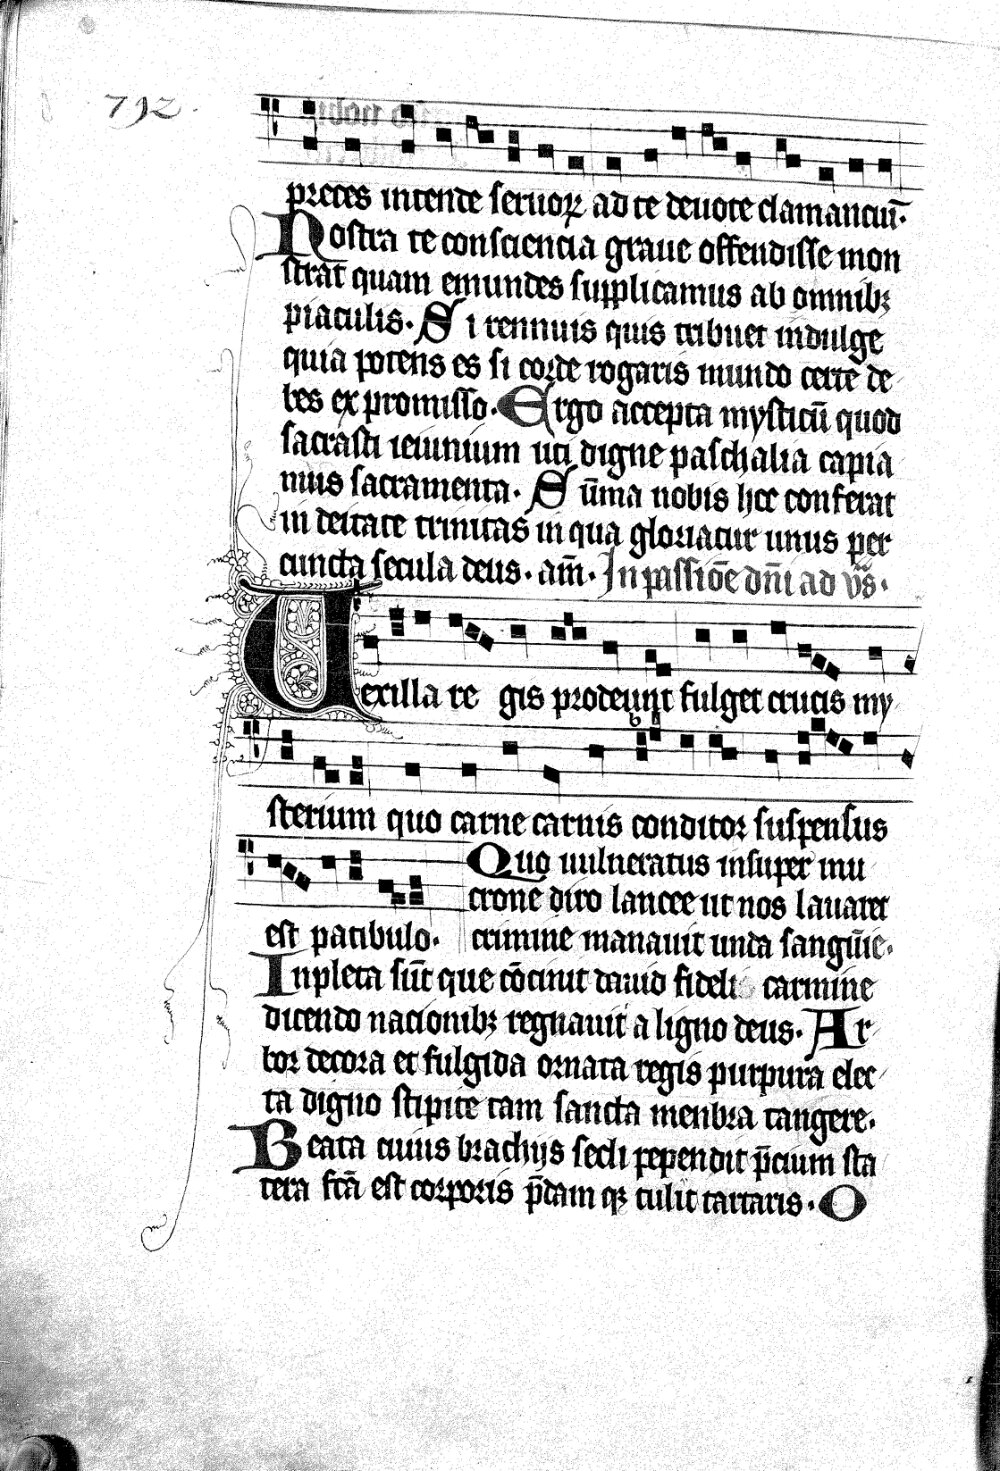 792.
preces intende seruoꝝ ad te deuote clamanciū.
Nostra te consciencia graue offendisse mon
strat quam emundes supplicamus ab omnibꝫ
piaculis. Si rennuis quis tribuet indulge
quia potens es si corde rogaris mundo certe de
bes ex promisso. Ergo accepta mysticū quod
sacrasti ieiunium uti digne paschalia capia
mus sacramenta. Sūma nobis hec conferat
in deitate trinitas in qua gloriatur unus per
cuncta secula deus. am̄. In passiōe dn̄i ad vs̄.
Vexilla re gis prodeunt fulget crucis my
sterium quo carne carnis conditor suspensus
Quo uulneratus insuper mu
crone diro lancee ut nos lauaret
est patibulo. crimine manauit unda sangūie.
Inpleta sūt que cōcinit dauid fideli carmine
dicendo nacionibꝫ regnauit a ligno deus. Ar
bor decora et fulgida ornata regis purpura elec
ta digno stipite tam sancta menbra tangere.
Beata cuius brachijs secli pependit p̄cium sta
tera fc̄a est corporis p̄dam qꝫ tulit tartaris. O